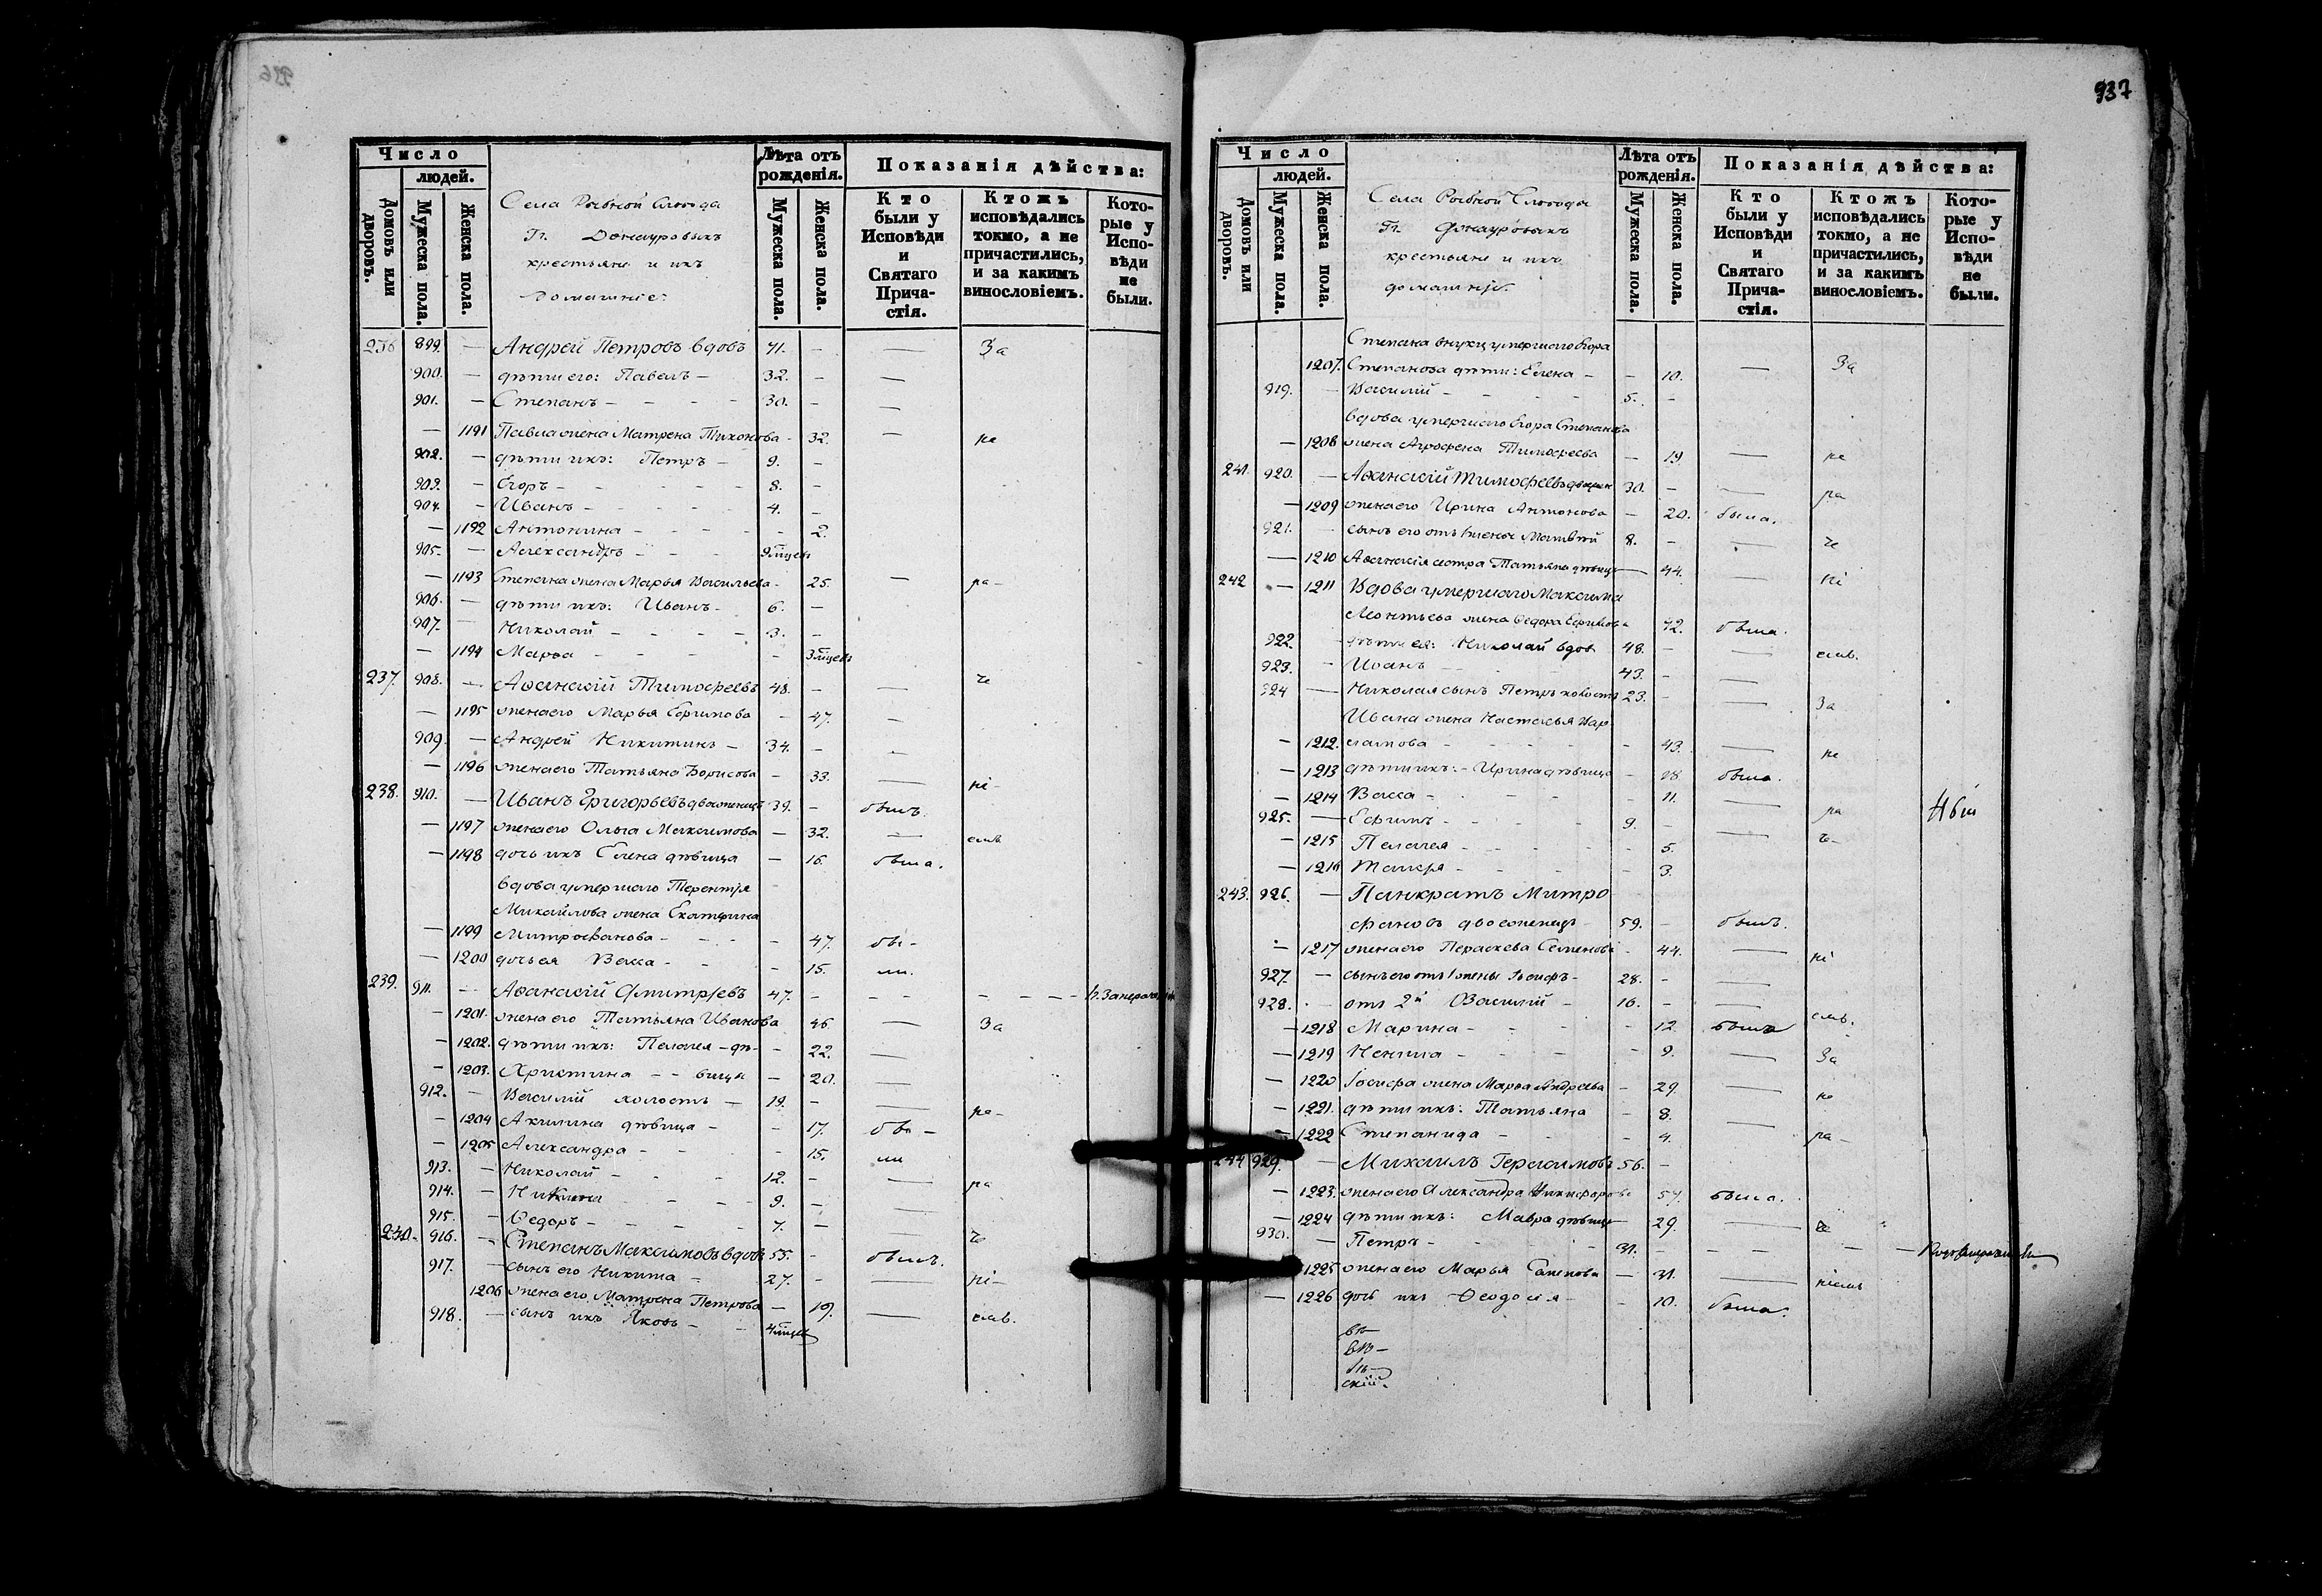 937
Число
людей.
Домовъ или дворовъ.
Мужеска пола.
Женска пола.
Села Рыбной Слобода
Гг. Донауровыхъ
крестьяне и ихъ
домашніе:
Лѣта отъ рожденія.
Мужеска пола.
Женска пола.
Показанія дѣйства:
Кто были у Исповѣди и Святаго Причастія.
Ктожъ исповѣдались токмо, а не причастились, и за какимъ винословіемъ.
Которые у Исповѣди не были.
236 899. — Андрей Петровъ вдовъ 71. - — За
900. — дѣти его: Павелъ — 32. - —
901. — Степанъ - - - - 30. - —
— 1191 Павла жена Матрена Тихонова - 32. — ра
902. — дѣти ихъ: Петръ — 9. -
903. - Егоръ - - - - 8. -
904. - Иванъ - - - - 4. -
— 1192 Антонина - - - - - 2.
905. — Александръ - - - 9 мцевъ
— 1193 Степана жена Марья Васильева - 25. — ра-
906. — дѣти ихъ: Иванъ - 6. —
907. — Николай - - - - 3. -
— 1194 Марѳа - - - - 3 мцевъ
237. 908. — Аѳанасій Тимоѳеевъ 48. - — че
— 1195 жена его Марья Ефимова - 47. —
909. — Андрей Никитинъ — 34. - —
— 1196 жена его Татьяна Борисова - 33. — ні-
238. 910. — Иванъ Григорьевъ двоеженецъ 39. - былъ.
— 1197 жена его Ольга Максимова — 32. — емъ
— 1198 дочь ихъ Елена дѣвица — 16. была.
вдова умершаго Терентія
Михайлова жена Екатерина
— 1199 Митрофанова - - - 47. бы-
— 1200 дочь ея Васса - - - 15. ли.
239. 911. — Аѳанасій Дмитріевъ 47. - - - - - -
— 1201. жена его Татьяна Иванова 46. — За
— 1202. дѣти ихъ: Пелагея - дѣ- - 22. —
— 1203. Христина - - вицы — 20. —
912. — Василій холостъ — 19. - — ра-
— 1204 Акилина дѣвица - - 17. бы -
— 1205 Александра - - - 15. ли
913. — Николай - - - 12. - — ра
914. - Никита - - - 9. -
915. — Ѳедоръ - - - - 7. — — че
240. 916. — Степанъ Максимовъ вдовъ 55. - былъ.
917. — сынъ его Никита - 27. - — ні-
1206 жена его Матрена Петрова — 19. — емъ.
918. — сынъ ихъ Яковъ - - 4 мцевъ
Число
людей.
Домовъ или дворовъ.
Мужеска пола.
Женска пола.
Села Рыбной Слобода
Гг. Донауровыхъ
крестьяне и ихъ
домашніе.
Лѣта отъ рожденія.
Мужеска пола.
Женска пола.
Показанія дѣйства:
Кто были у Исповѣди и Святаго Причастія.
Ктожъ исповѣдались токмо, а не причастились, и за какимъ винословіемъ.
Которые у Исповѣди не были.
Степана внуки умершаго Егора
1207. Степанова дѣти: Елена - - 10. — За
919. — Василій - - - - 5. -
вдова умершаго Егора Степанова
— 1208 жена Агрофена Тимоѳеева — 19 — ра
241. 920. — Аѳанасій Тимоѳеевъ двоежен 30. - — ра
— 1209 жена его Ирина Антонова - 20. была.
921. — сынъ его отъ 1 жены Матвѣй 8. - — че
— 1210 Аѳанасія сестра Татьяна дѣвица — 44. — ні
242 — 1211 Вдова умершаго Максима
Леонтьева жена Ѳедора Ефимова 72. была.
922. - дѣти ея: Николай вдовъ 48. - — емъ.
923. - Иванъ - - - 43. - —
924 — Николая сынъ Петръ холостъ 23. - — За
Ивана жена Настасья Вар
— 1212. ламова - - - - 43. — ра
— 1213 дѣти ихъ: - Ирина дѣвица - 18 была.
— 1214 Васса - - - - 11. — ра
925. — Ефимъ - - - - 9. - — че-
— 1215 Пелагея - - - - 5.
— 1216 - - - 3.
243. 926. — Панкратъ Митро
фановъ двоеженецъ 59. - былъ.
— 1217 жена его Параскева Семенова - 44. — ні
927. — сынъ его отъ 1 жены Іосифъ - 28. - —
928. - отъ 2й Василій - 16. - — емъ.
— 1218 Марина - - - - 12. была
— 1219 Ненила - - - - 9. — За
— 1220 Іосифа жена Марѳа Андреева - 29. — ра
— 1221. дѣти ихъ: Татьяна - 8. —
1222 Степанида - - - 4. ра -
244 929. — Михаилъ Герасимовъ 56. -
— 1223. жена его Александра Никифорова 57. была.
— 1224 дѣти ихъ: Мавра дѣвица — 29. — че
930. — Петръ - - - - 31. - - - - —
1225 жена его Марья — 31. — ніемъ
— 1226 дочь ихъ Ѳеодосія - - 10. была.